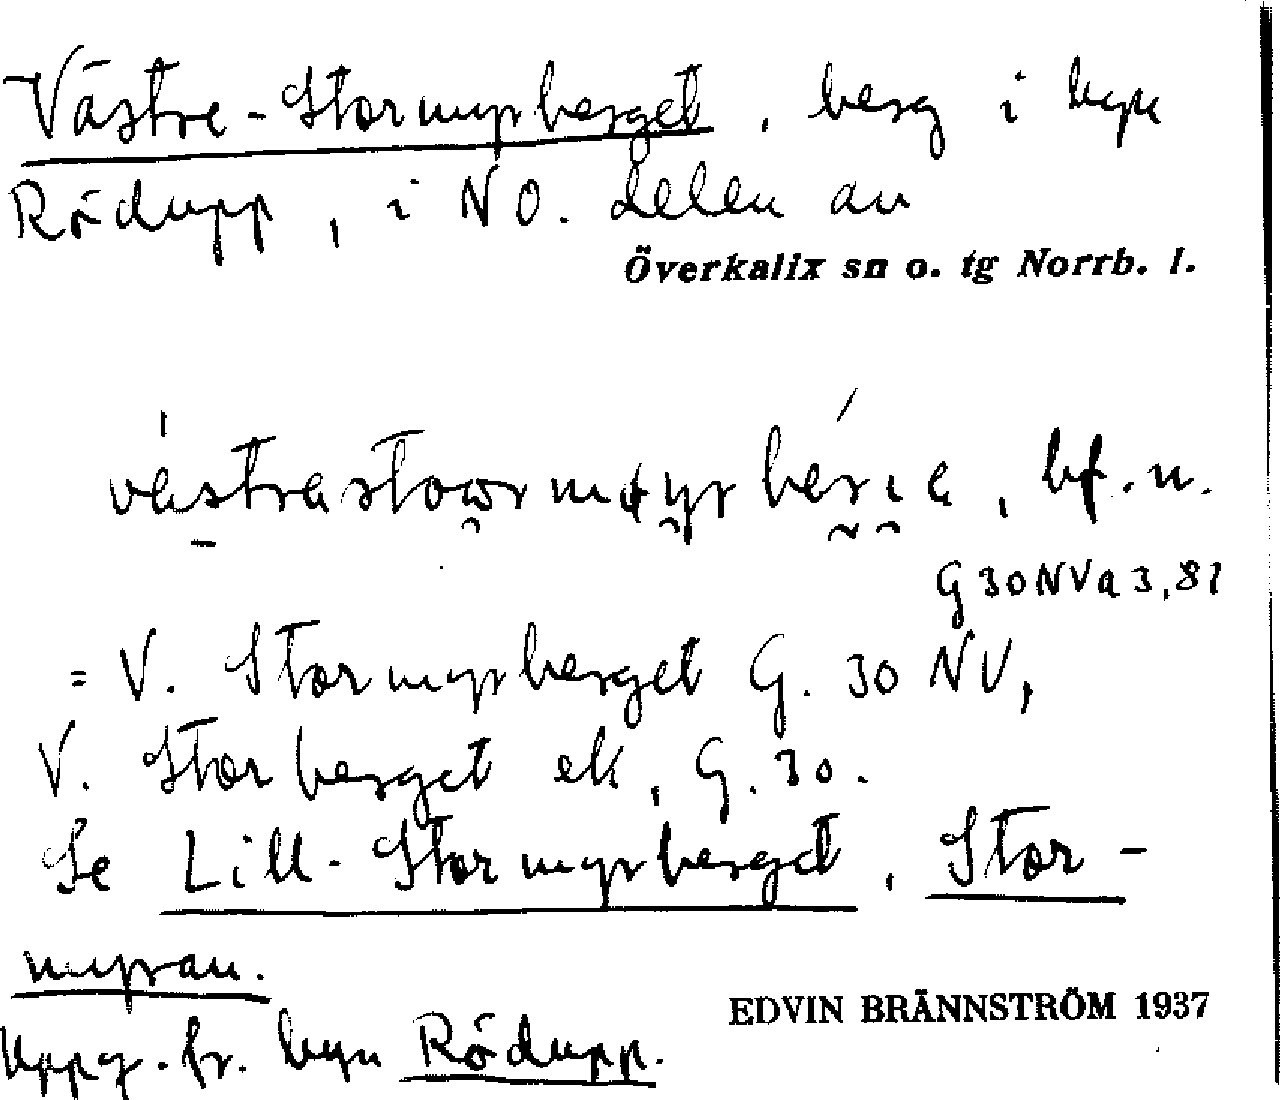 Västre-Stormyrberget, berg i byn
Rödupp, i NO. delen av
Överkalix sn o. tg Norrb. l.
bf. n.
G 30 NV a 3, 81
= V. Stormyrberget G. 30 NV,
V. Storberget ek. G. 30.
Se Lill-Stormyrberget, Stor-
myran.
EDVIN BRÄNNSTRÖM 1937
Uppg. fr. byn Rödupp.